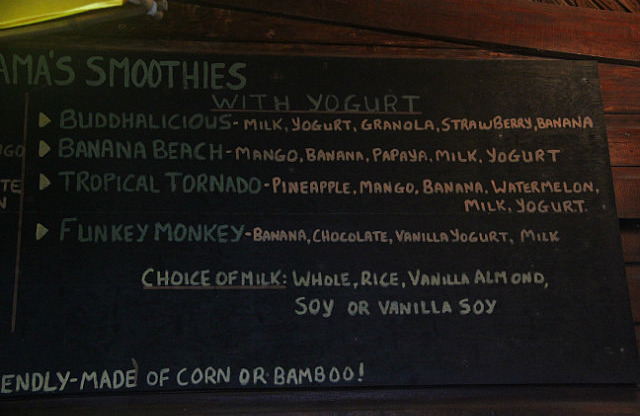 AMA'S SMOOTHIES
WITH YOGURT
BUDDHALICIOUS- MILK, YOGURT, GRANOLA, STRAWBERRY, BANANA
BANANA BEACH- MANGO, BANANA, PAPAYA, MILK, YOGURT
TROPICAL TORNADO- PINEAPPLE, MANGO, BANANA, WATERMELON,
MILK, YOGURT.
FUNKEY MONKEY- BANANA, CHOCOLATE, VANILLA YOGURT, MILK
CHOICE OF MILK: WHOLE, RICE, VANILLA ALMOND,
SOY OR VANILLA SOY
ENDLY-MADE OF CORN OR BAMBOO!